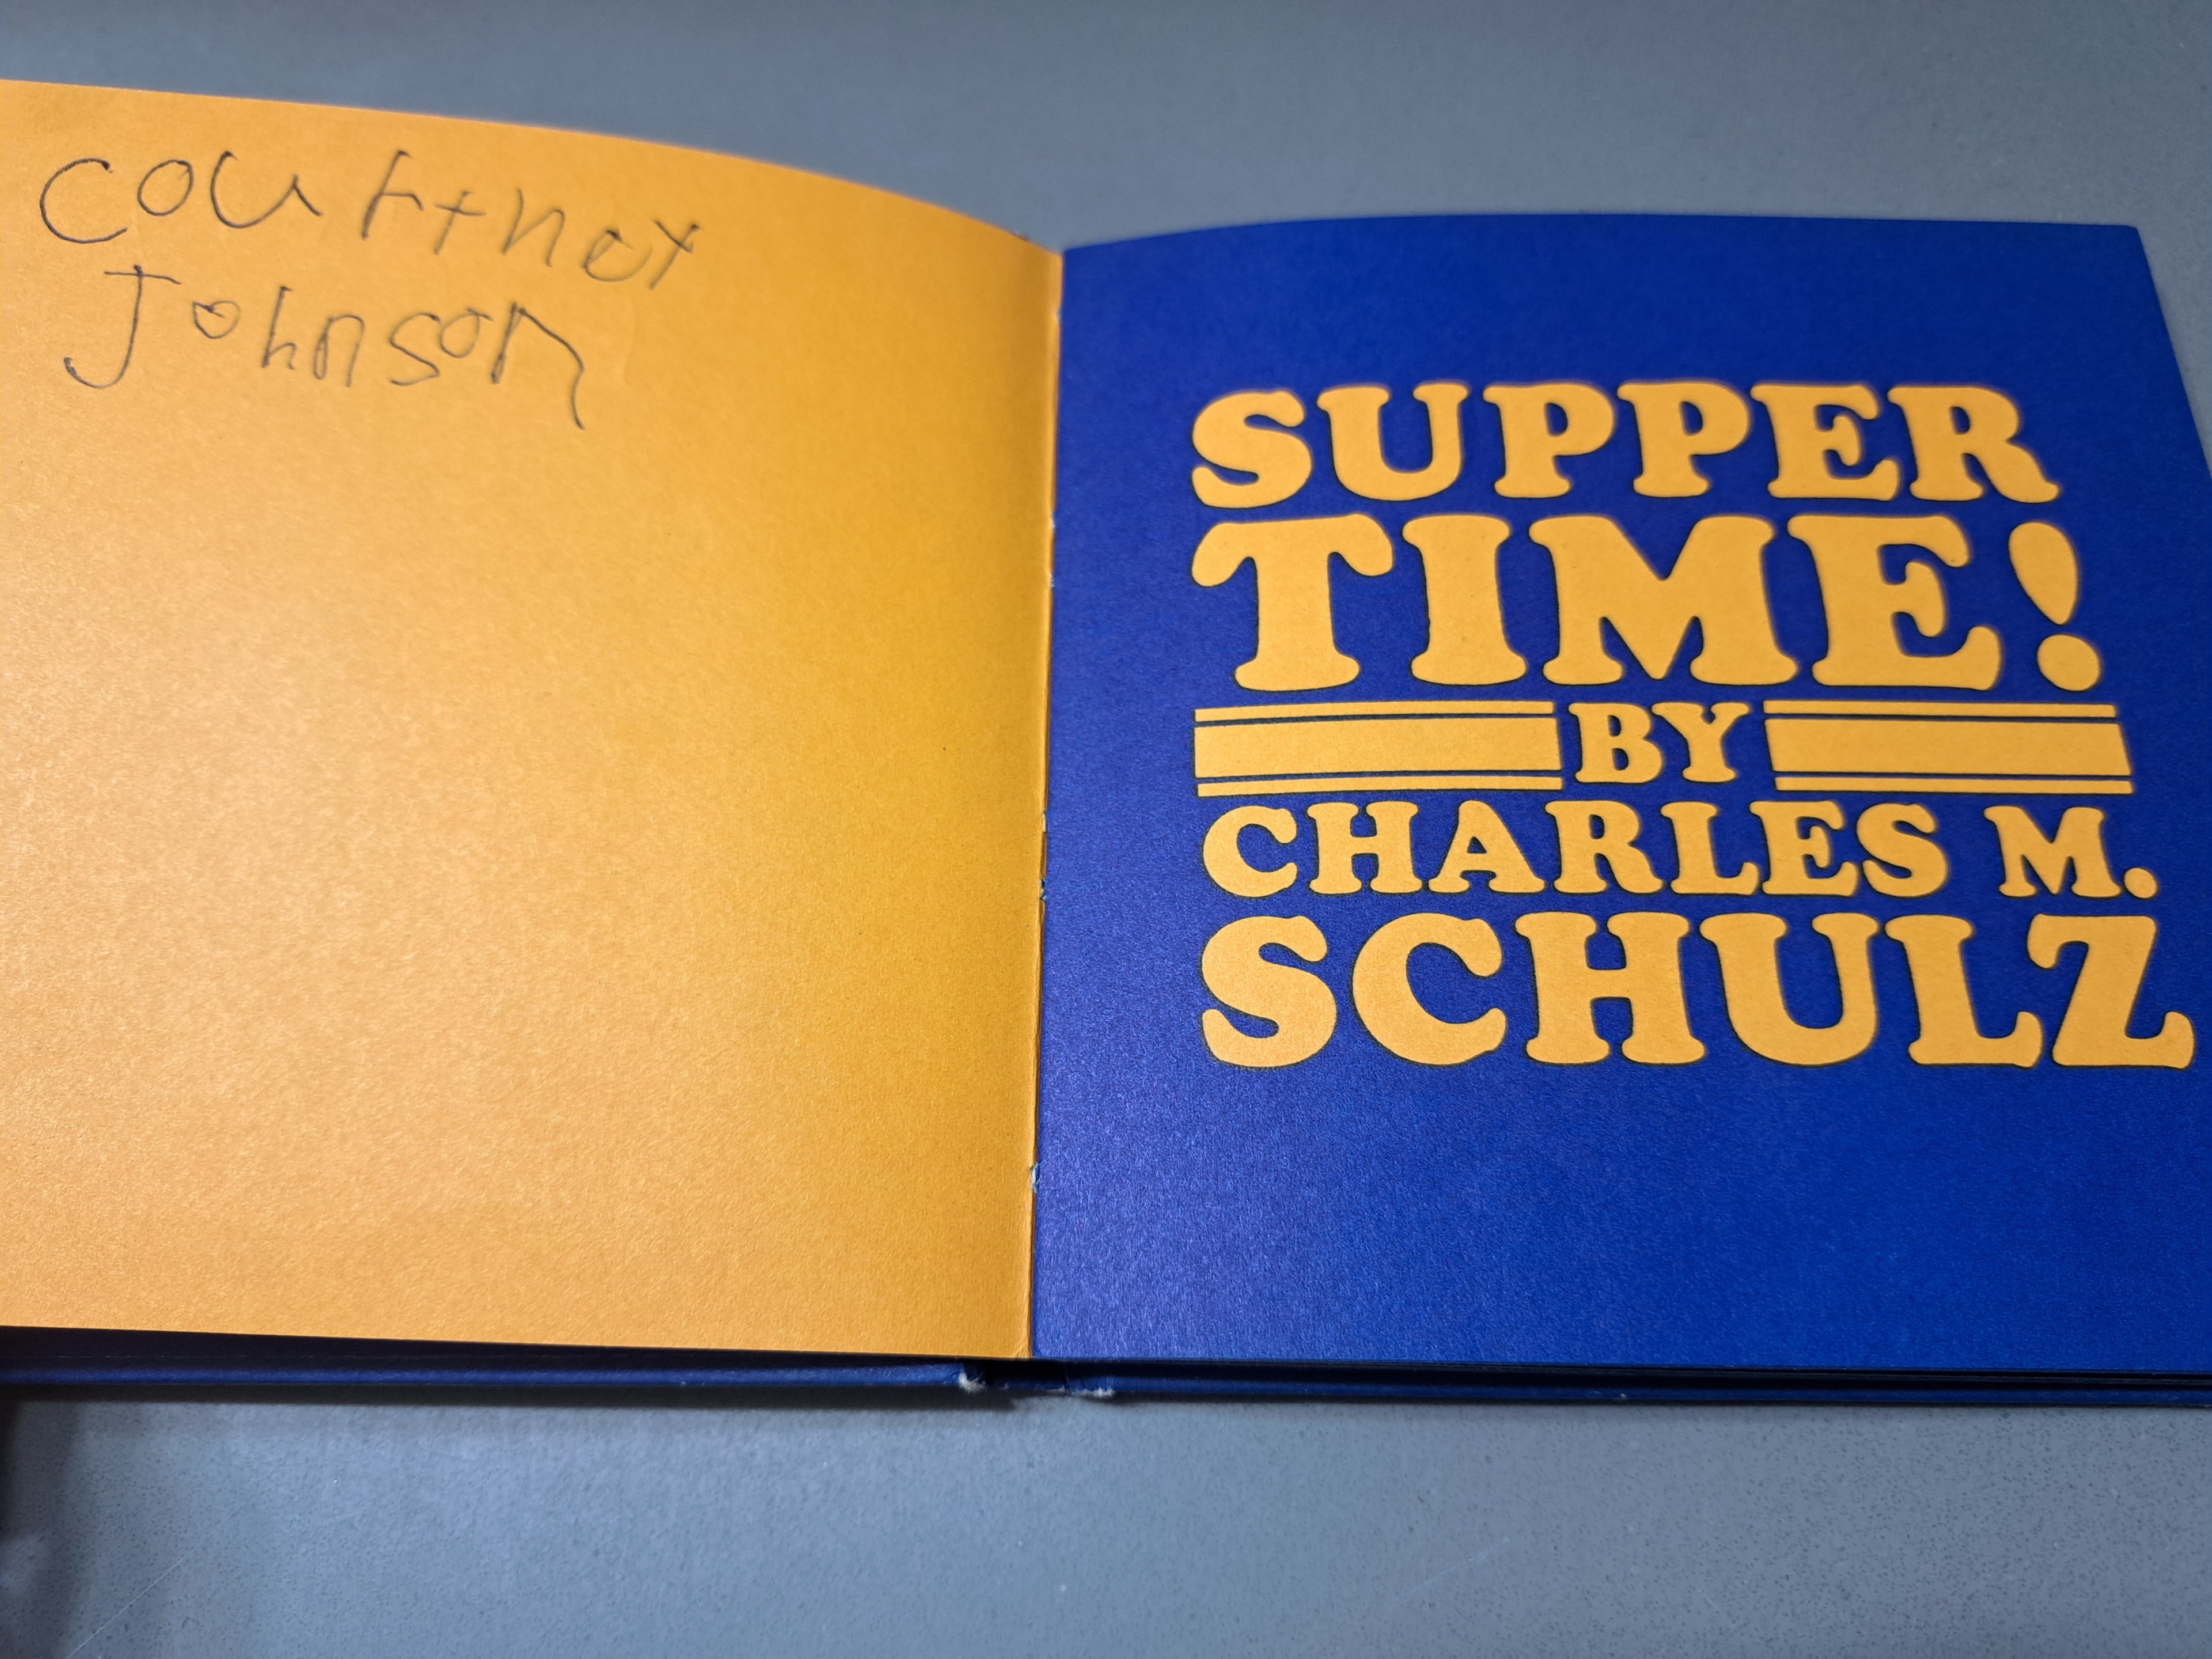 Courtney
Johnson
SUPPER
TIME!
BY
CHARLES M.
SCHULZ